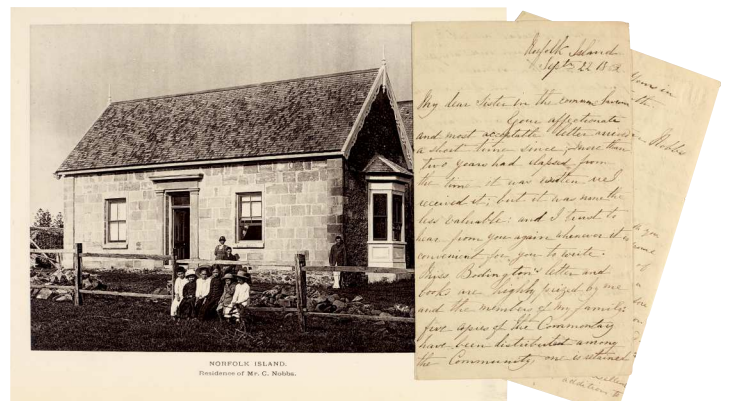 NORFOLK ISLAND.
Residence of Mr. C. Nobbs.
Norfolk Island
Sept 22
My dear Sister in the common
Your affectionate
and most acceptable letter
a short time since; more than
two years had elapsed from
the time it was written
received it; but it was none the
less valuable: and I trust to
hear from you again whenever it is
convenient for you to write.
letter and
books are highly prized by me
and the members of my family:
five copies of the Commentary
have been distributed among
the Community, one is retained
Nobbs
you
of
addition